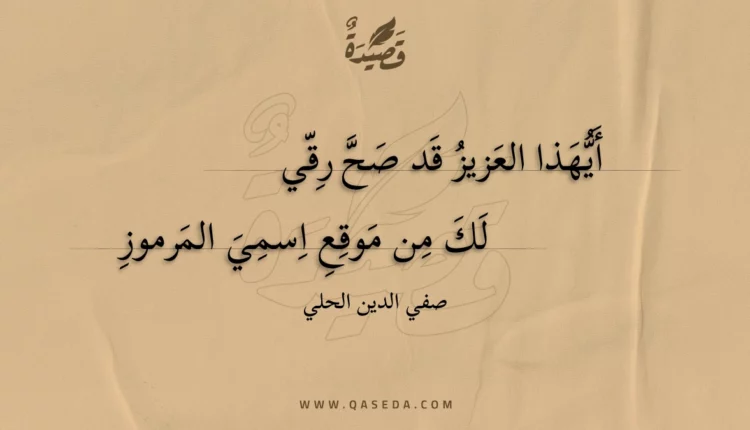 قَصِيْدَةٌ
أَيُّهَذا العَزيزُ قَد صَحَّ رِقّي
لَكَ مِن مَوقِعِ اِسمِيَ المَرموزِ
صفي الدين الحلي
WWW.QASEDA.COM